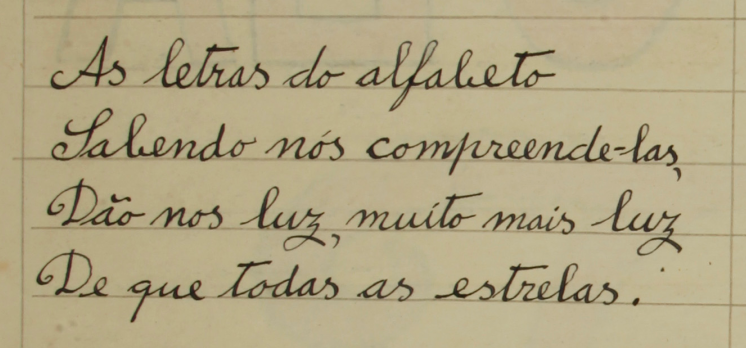 As letras do alfabeto
Sabendo nós compreende-las,
Dão nos luz, muito mais luz
De que todas as estrelas.